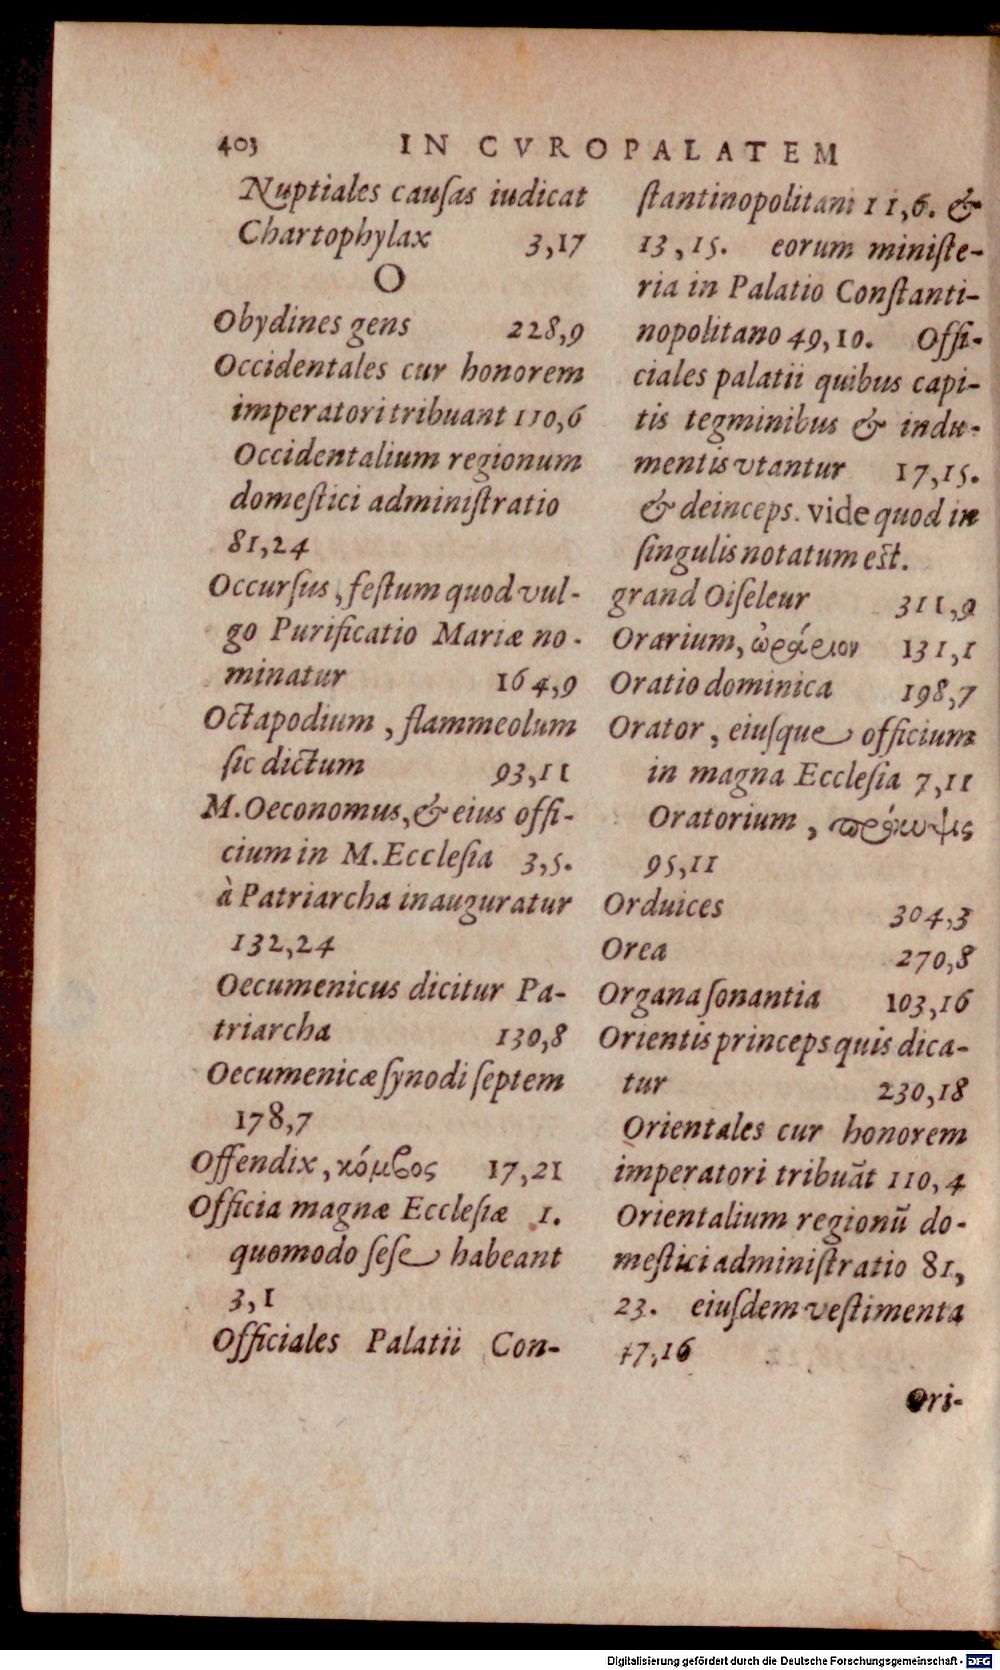 403 IN CVROPALATEM
Nuptiales cauſas iudicat
Chartophylax 3,17
O
Obydines gens 228,9
Occidentales cur honorem
imperatori tribuant 110,6
Occidentalium regionum
domeſtici adminiſtratio
81,24
Occurſus, feſtum quod vul-
go Purificatio Mariæ no-
minatur 164,9
Octapodium, flammeolum
ſic dictum 93,11
M. Oeconomus, & eius offi-
cium in M. Eccleſia 3,5.
à Patriarcha inauguratur
132,24
Oecumenicus dicitur Pa-
triarcha 130,8
Oecumenicæ ſynodi ſeptem
178,7
Offendix, κόμβος 17,21
Officia magnæ Eccleſiæ 1.
quomodo ſeſe habeant
3,1
Officiales Palatii Con-
ſtantinopolitani 11,6. &
13,15. eorum miniſte-
ria in Palatio Conſtanti-
nopolitano 49,10. Offi-
ciales palatii quibus capi-
tis tegminibus & indu-
mentis vtantur 17,15.
& deinceps. vide quod in
ſingulis notatum eſt.
grand Oiſeleur 311,9
Orarium, ὠράριον 131,1
Oratio dominica 198,7
Orator, eiuſque officium
in magna Eccleſia 7,11
Oratorium, πρόκυψις
95,11
Orduices 304,3
Orea 270,8
Organa ſonantia 103,16
Orientis princeps quis dica-
tur 230,18
Orientales cur honorem
imperatori tribuāt 110,4
Orientalium regionū do-
meſtici adminiſtratio 81,
23. eiuſdem veſtimenta
17,16
Ori-
Digitalisierung gefördert durch die Deutsche Forschungsgemeinschaft - DFG